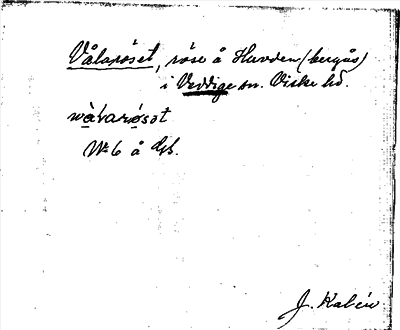 Vålaröset, röse å Huvden (bergås)
i Veddige sn. Viske hd.
wàlaròsət
No 6 å
J. Kalén